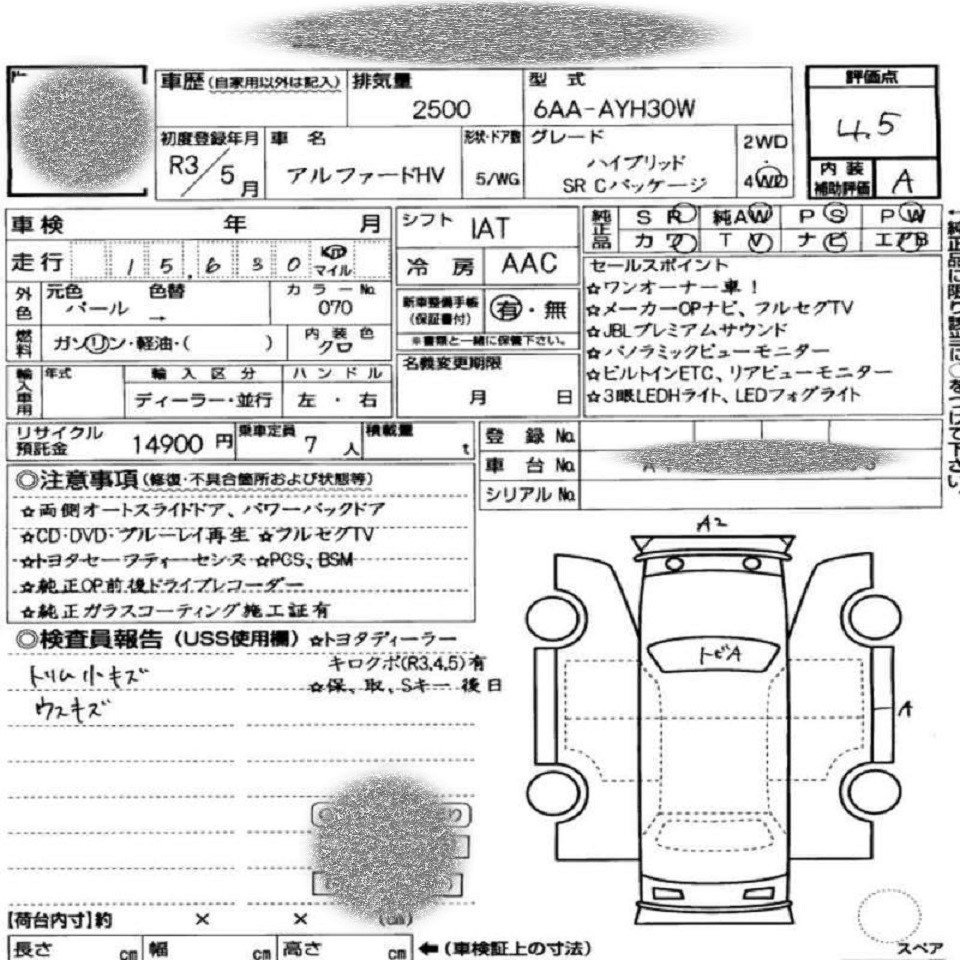 車歴(自家用以外は記入) 排気量 2500 型式 6AA-AYH30W 評価点 4.5
初度登録年月 R3/5月 車名 アルファードHV 形状・ドア数 5/WG グレード ハイブリッド SR Cパッケージ 2WD・4WD
内装補助評価 A
車検 年 月 シフト IAT 純正品 SR 純AW PS PW
走行 15,630 Km マイル 冷房 AAC カワ TV ナビ エアB
外色 元色 パール 色替 → カラーNo. 070
燃料 ガソリン・軽油・( ) 内装色 クロ
新車整備手帳(保証書付) 有・無
※書類と一緒に保管下さい。
輸入車用 年式 輸入区分 ディーラー・並行 ハンドル 左・右
名義変更期限 月 日
セールスポイント
☆ワンオーナー車!
☆メーカーOPナビ、フルセグTV
☆JBLプレミアムサウンド
☆パノラミックビューモニター
☆ビルトインETC、リアビューモニター
☆3眼LEDHライト、LEDフォグライト
←純正品に限り該当に○をつけて下さい。
リサイクル預託金 14900円 乗車定員 7人 積載量 t
登録No.
車台No.
シリアルNo.
◎注意事項(修復・不具合箇所および状態等)
☆両側オートスライドドア、パワーバックドア
☆CD・DVD・ブルーレイ再生 ☆フルセグTV
☆トヨタセーフティーセンス ☆PCS、BSM
☆純正OP前後ドライブレコーダー
☆純正ガラスコーティング施工証有
◎検査員報告(USS使用欄) ☆トヨタディーラー
キロクボ(R3,4,5)有
☆保、取、Sキー後日
トリム小キズ
ウスキズ
A2
トビA
A
【荷台内寸】約 × × (cm)
長さ cm 幅 cm 高さ cm ←(車検証上の寸法)
スペア